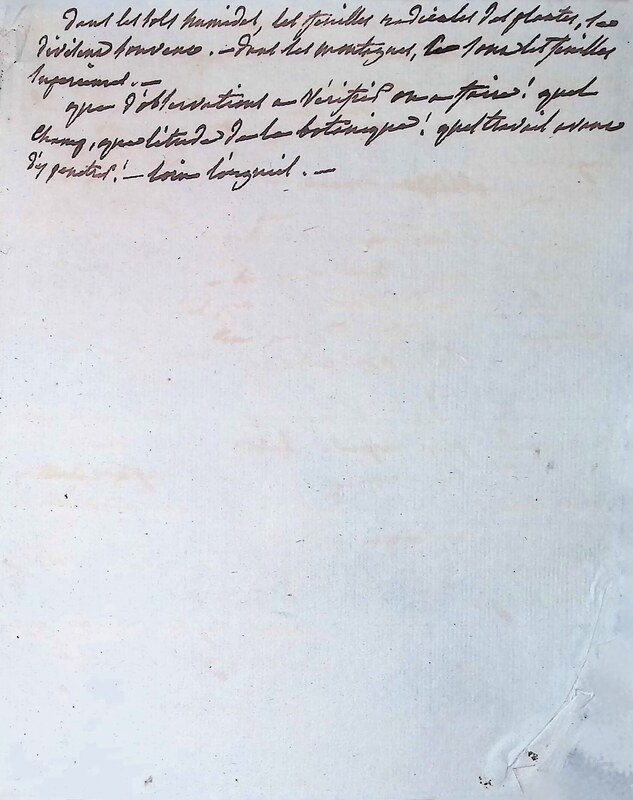 dans les sols humides, les feuilles radicales des plantes, se
divisent souvent. – dans les montagnes, ce sont les feuilles
supérieures. –
que d'observations à vérifier ou à faire! quel
champ, que l'étude de la botanique! quel travail avant
d'y pénétrer! – loin l'orgueil. –